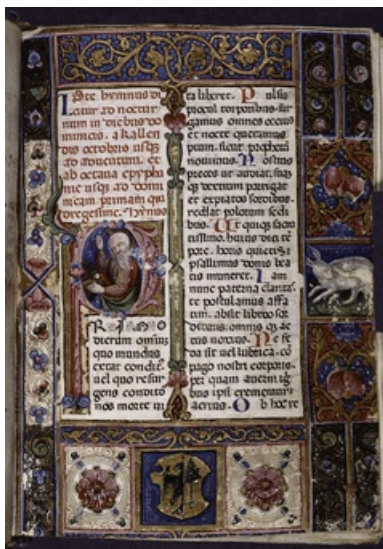 Iste hymnus di
catur ad noctur
num in diebus do
minicis. a kallen
dis octobris usqꝫ
ad aduentum. et
ab octaua epyphā
nie usqꝫ ad domi
nicam primam qua
dragesime. Hymnus
PRIMO
dierum omniū
quo mundus
extat condit
uel quo resur
gens condito
nos morte ui
cta liberet. Pulsis
procul torporibus. sur
gamus omnes ocius
et nocte queramus
pium. sicut prophetā
nouimus. Nostras
preces ut audiat. suaqꝫ
dexteram porrigat
et expiatos sordibus
reddat polorum sedi
bus. Ut quiqꝫ sacra
tissimo. huius diei tē
pore. horis quietis
psallimus donis bea
tis muneret. Iam
nunc paterna clarita
te postulamus affa
tim. absit libido sor
didans. omnis qꝫ ac
tus noxius. Ne fe
da sit uel lubrica. cō
pago nostri corporis.
per quam auerni ig
nibus ipsi crememur
acrius. Ob hoc re